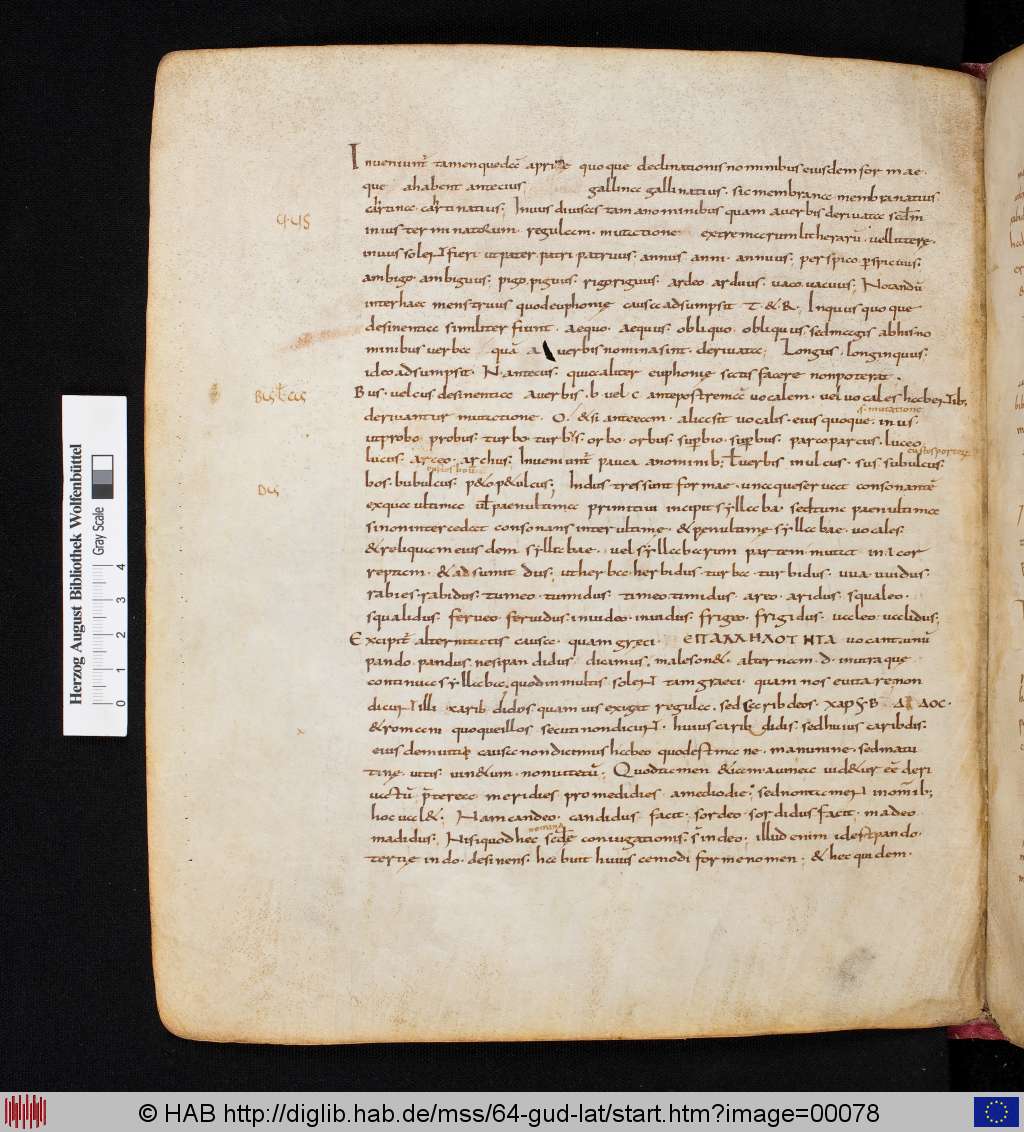 Inveniunt̄ tamen quędā a primę quoque declinationis nominibus eiusdem formae.
que a habent ante cius gallina gallinatius. sic membrana membranatius
cartina cartinatius; In uus diuisas tam a nominibus quam a verbis derivata scdm̄
in ius terminatorum regulam. mutatione extremarum litherarū. vel littere.
in uus solent fieri ut pater patri patruus. annus anni annuus; perspico perspicuus.
ambigo ambiguus; pigo piguus; rigo riguus. ardeo arduus. vaco vacuus; Notandū
inter haec menstruus quod euphonię causa adsumpsit T. & R.; In quus quoque
desinentia similiter fiunt. aequo. aequus. obliquo. obliquus. sed magis ab his no
minibus verba quā a verbis nomina sint derivata; Longus. longinquus.
ideo adsumpsit N ante cus. quia aliter euphonię satis facere non poterat.
Bus. vel cus desinentia a verbis .b. vel .c. ante postrema vocalem. vel vocales habentib;
derivantur mutatione. O. & si ante eam. alia sit vocalis. eius quoque. in us.
s. mutatione
ut probo probus. turbo turbus. orbo. orbus. superbio. superbus. parco parcus. luceo
lucus. arceo. archus. Inveniunt̄ pauca a nominib; ł verbis in ulcus. sus subulcus.
custos porcorum
bos. bubulcus. p&o p&ulcus; In dus tres sunt formae. una que servat consonantē
ex qua ultima ul paenultima primitivi incipit syllaba. sed tunc paenultima
si non intercedat consonans inter ultimę. & penultimę syllabae. vocales.
& reliquam eiusdem syllabae. vel syllabarum partem mutat in .i. cor
reptam. & adsumit dus; ut herba herbidus. turba. turbidus. uva uvidus.
rabies rabidus. tumeo. tumidus. timeo timidus. areo. aridus. squaleo.
squalidus. ferveo. fervidus. invideo. invidus. frigeo. frigidus. valeo validus;
Excipit̄ alternitatis causa. quam greci ЄΠΑΛΛΗΛΟΤΗΤΑ vocant. unū
pando. pandus. ne si pandidus dicamus. male son&. alternam .d. in utraque
continua syllaba. quod in multis solent tam graeci. quam nos euitare. non
dicunt illi xarib didos. quamvis exigat regula. sed scaribdeos. χαρΥΒ Δ ΔΟC.
& romani quoque illos secuti non dicunt. huius carib didis. sed huius caribdis.
eius demutię causa non dicimus habeo quod est mane. manunine. sed matu
tine. vitis. vin&um. non vitetū; Quod tamen & iam a uineic vid&ur eē deri
vatū praeterea meridies pro medidies a medio die; sed non tamen in omīb;
hoc val&; Nam candeo. candidus facit; sordeo. sordidus facit. madeo
madidus; Nisi quod hec scdē coniugationis; s̄ in deo; illud enim id est pando.
nomina
tertię in do. desinens. habuit huiuscemodi forme nomen; & hec quidem.
cus
Bus ł cus
Dus
Herzog August Bibliothek Wolfenbüttel
Gray Scale
0 1 2 3 4
© HAB http://diglib.hab.de/mss/64-gud-lat/start.htm?image=00078